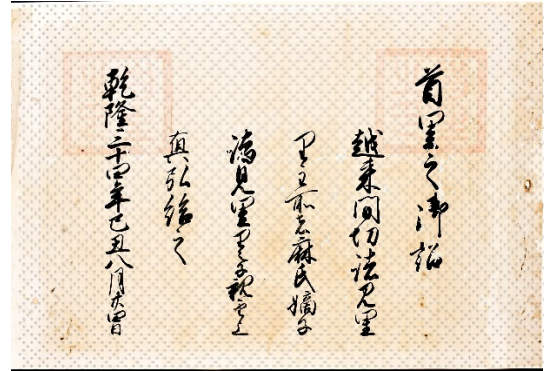 首里之御詔
越来間切諸見里
里主所者麻氏嫡子
諸見里里之子親雲上
真弘給之
乾隆三十四年己丑八月廿四日